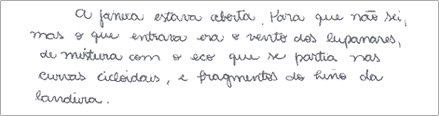 A janela estava aberta. Para que não sei,
mas o que entrava era o vento dos lupanares,
de mistura com o eco que se partia nas
curvas cicloidais, e fragmentos do hino da
bandeira.